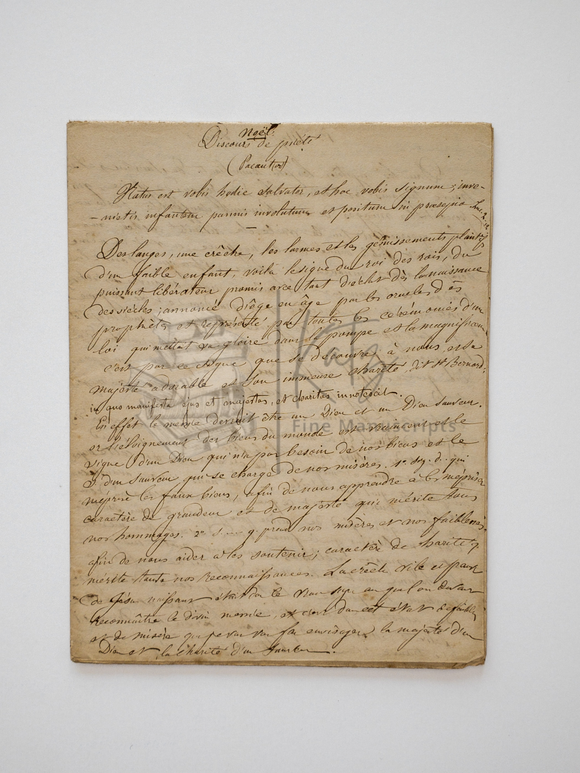 Noël.
Discours de piété
Natus est vobis hodie Salvator, et hoc vobis signum; inve-
-nietis infantem pannis involutum et positum in præsepio Luc. 2.
Des langes, une crêche, les larmes et les gémissements plaintifs
d'un faible enfant, voilà le signe du roi des rois, du
puissant libérateur promis avec tant d'éclat dès la naissance
des siècles; annoncé d'âge en âge par les oracles des
prophètes, et représenté par toutes les cérémonies d'une
loi qui mettait sa gloire dans la pompe et la magnificence
c'est par ce signe que se découvre à nous et sa
majesté adorable et son immense charité dit St Bernard:
majestas, et charitas innotescat.
En effet le même devait être un Dieu et un Sauveur.
et l'éloignement des biens du monde
signe d'un Dieu qui n'a pas besoin de nos biens et le
d'un Sauveur qui se charge de nos misères. 1° sig. d. qui
méprise les faux biens, afin de nous apprendre à les mépriser
caractère de grandeur et de majesté qui mérite tous
nos hommages. 2° s. qui prend nos misères et nos faiblesses
afin de nous aider à les soutenir; caractère de charité q.
mérite toute nos reconnaissances. La crêche vile et pauvre
de Jésus naissant était le vrai signe au quel on devait
reconnaître le divin messie, et c'est dans cet état de faiblesse
et de misère que je vais vous faire envisager la majesté d'un
Dieu et la charité d'un Sauveur.
KâR
Fine Manuscripts